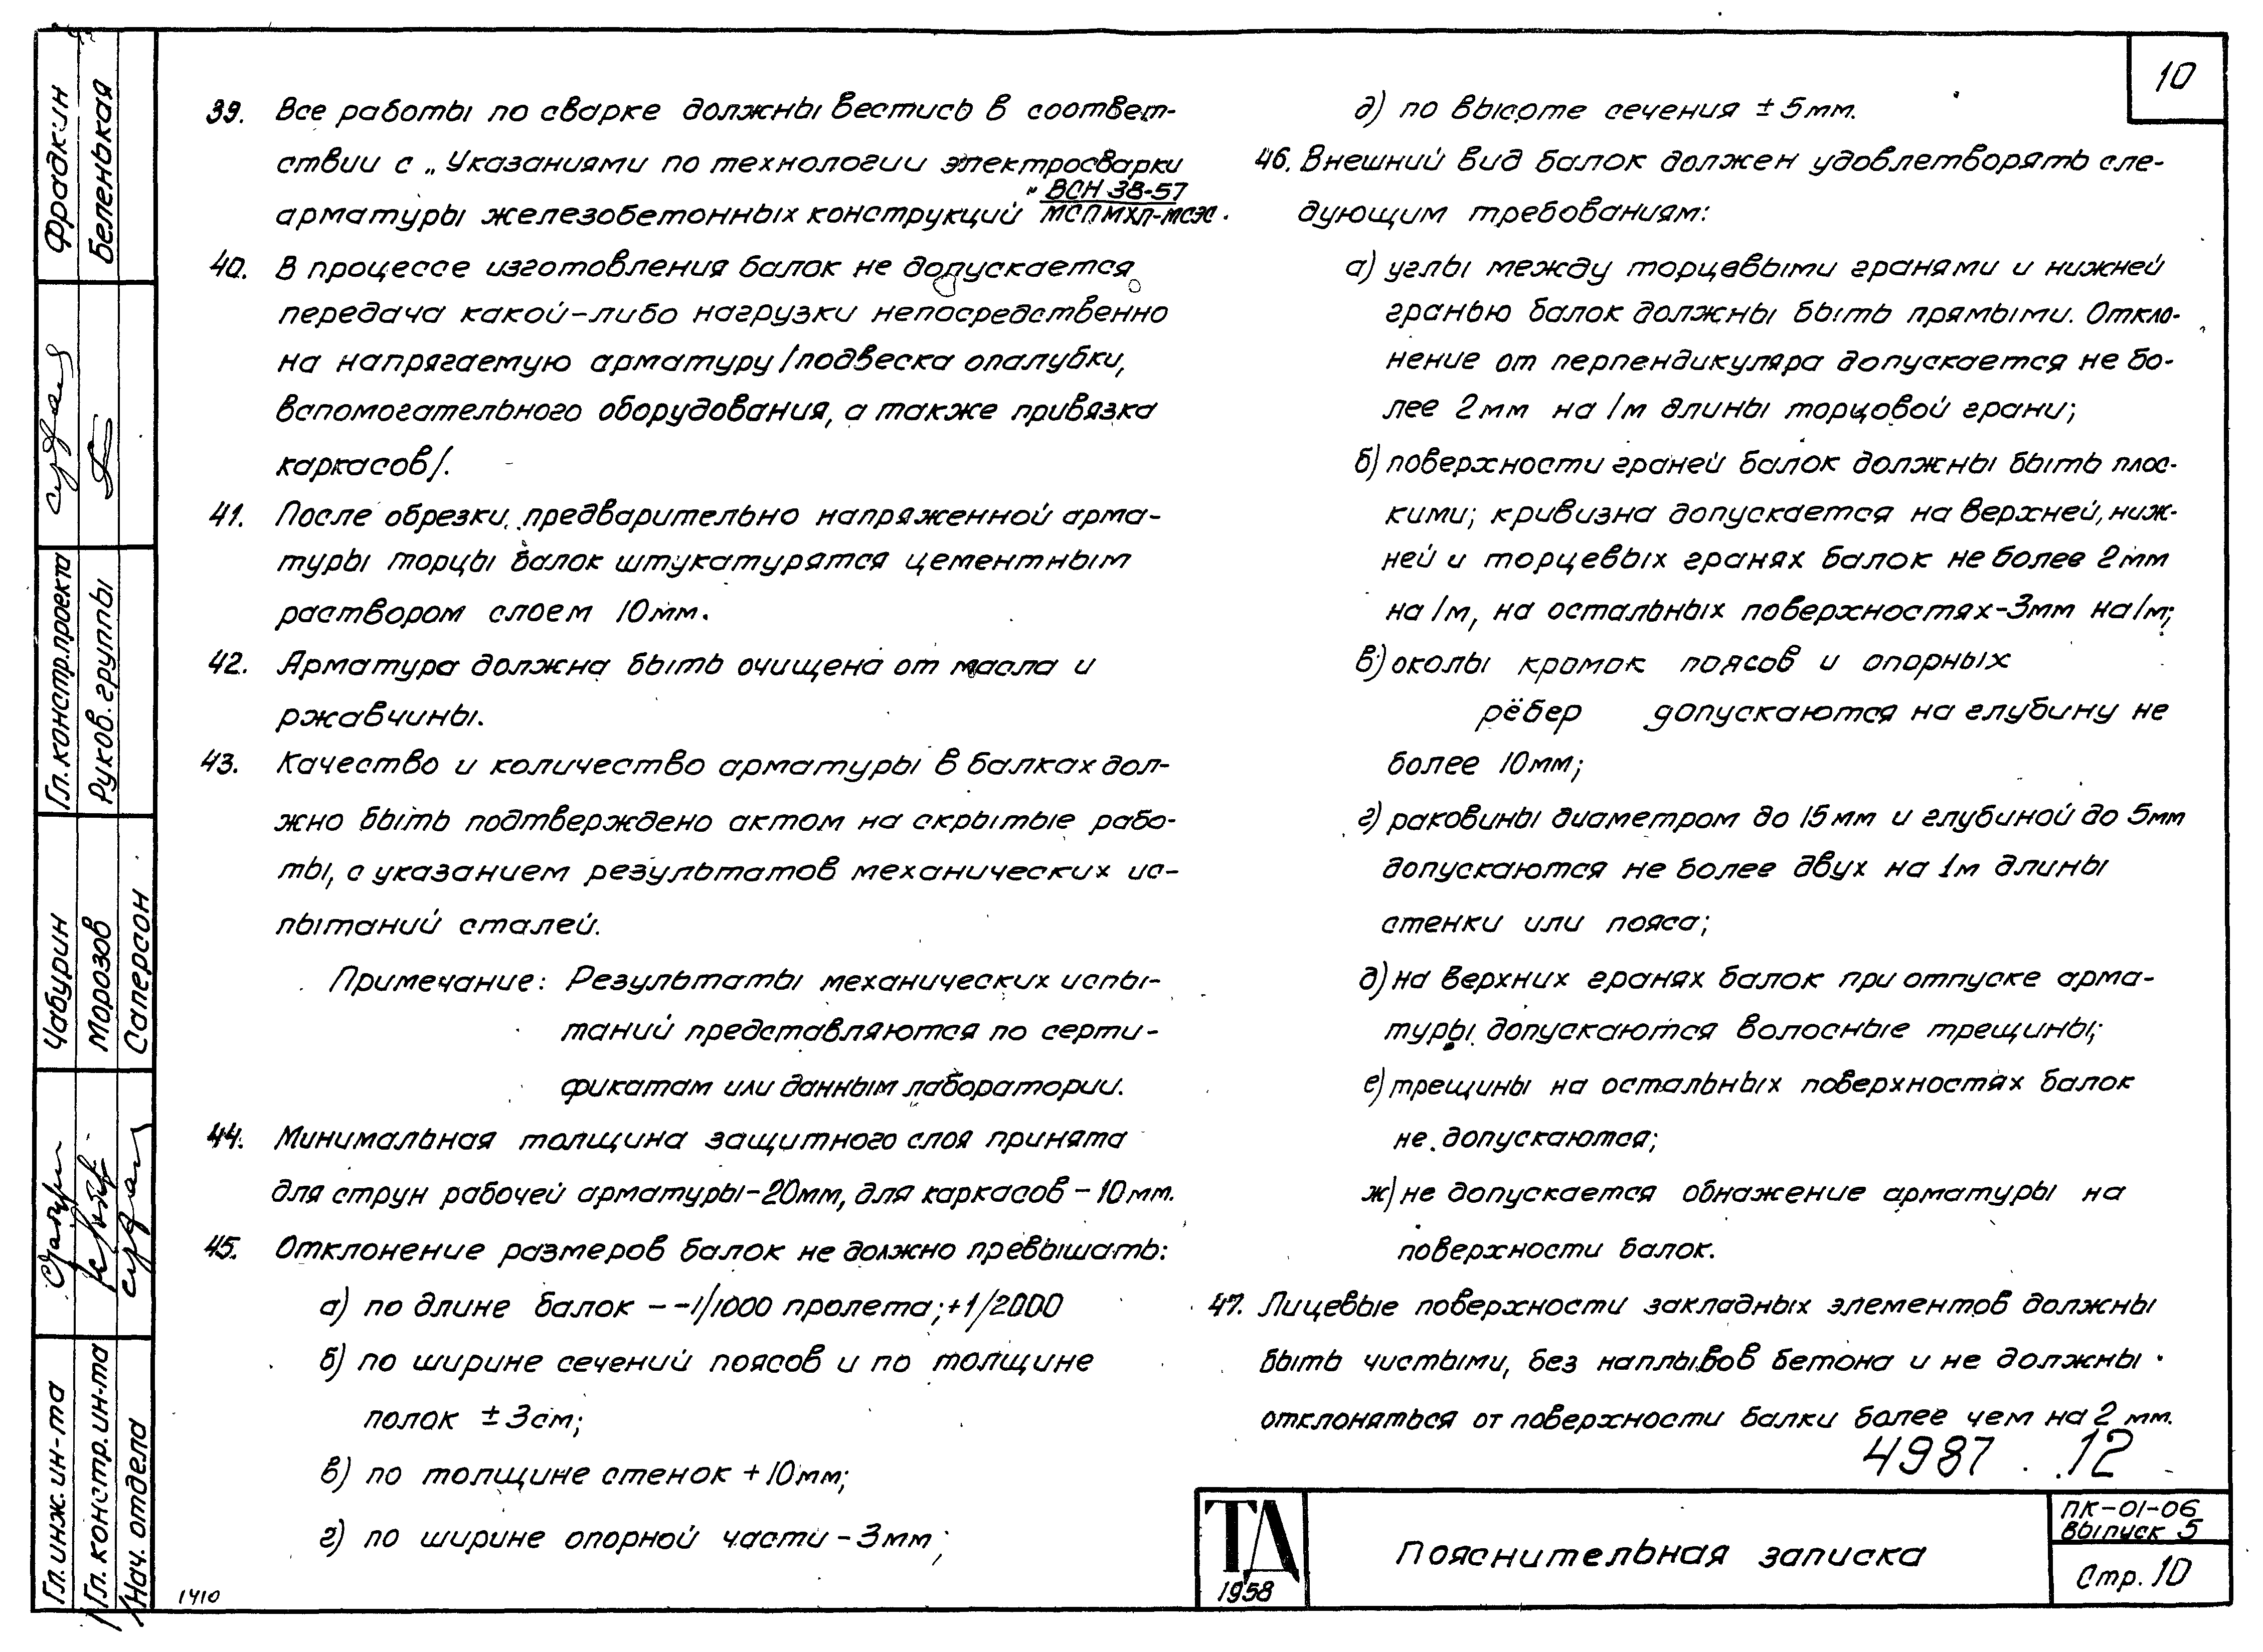 10
39. Все работы по сварке должны вестись в соответ-
ствии с „Указаниями по технологии электросварки
арматуры железобетонных конструкций" ВСН 38-57
МСПМХП-МСЭС.
40. В процессе изготовления балок не допускается
передача какой-либо нагрузки непосредственно
на напрягаемую арматуру /подвеска опалубки,
вспомогательного оборудования, а также привязка
каркасов/.
41. После обрезки предварительно напряженной арма-
туры торцы балок штукатурятся цементным
раствором слоем 10мм.
42. Арматура должна быть очищена от масла и
ржавчины.
43. Качество и количество арматуры в балках дол-
жно быть подтверждено актом на скрытые рабо-
ты, с указанием результатов механических ис-
пытаний сталей.
Примечание: Результаты механических испы-
таний представляются по серти-
фикатам или данным лаборатории.
44. Минимальная толщина защитного слоя принята
для струн рабочей арматуры-20мм, для каркасов-10мм.
45. Отклонение размеров балок не должно превышать:
а) по длине балок - -1/1000 пролета; +1/2000
б) по ширине сечений поясов и по толщине
полок ± 3см;
в) по толщине стенок + 10мм;
г) по ширине опорной части - 3мм;
д) по высоте сечения ± 5мм.
46. Внешний вид балок должен удовлетворять сле-
дующим требованиям:
а) углы между торцевыми гранями и нижней
гранью балок должны быть прямыми. Откло-
нение от перпендикуляра допускается не бо-
лее 2мм на 1м длины торцовой грани;
б) поверхности граней балок должны быть плос-
кими; кривизна допускается на верхней, ниж-
ней и торцевых гранях балок не более 2мм
на 1м, на остальных поверхностях-3мм на 1м;
в) околы кромок поясов и опорных
рёбер допускаются на глубину не
более 10мм;
г) раковины диаметром до 15мм и глубиной до 5мм
допускаются не более двух на 1м длины
стенки или пояса;
д) на верхних гранях балок при отпуске арма-
туры допускаются волосные трещины;
е) трещины на остальных поверхностях балок
не допускаются;
ж) не допускается обнажение арматуры на
поверхности балок.
47. Лицевые поверхности закладных элементов должны
быть чистыми, без наплывов бетона и не должны
отклоняться от поверхности балки более чем на 2 мм.
4987 12
ТД
1958
Пояснительная записка
ПК-01-06
выпуск 5
Стр. 10
1410
Гл. инж. ин-та Чабурин Гл. констр. проекта Фрадкин
Гл. констр. ин-та Морозов Руков. группы Беленькая
Нач. отдела Саперсон